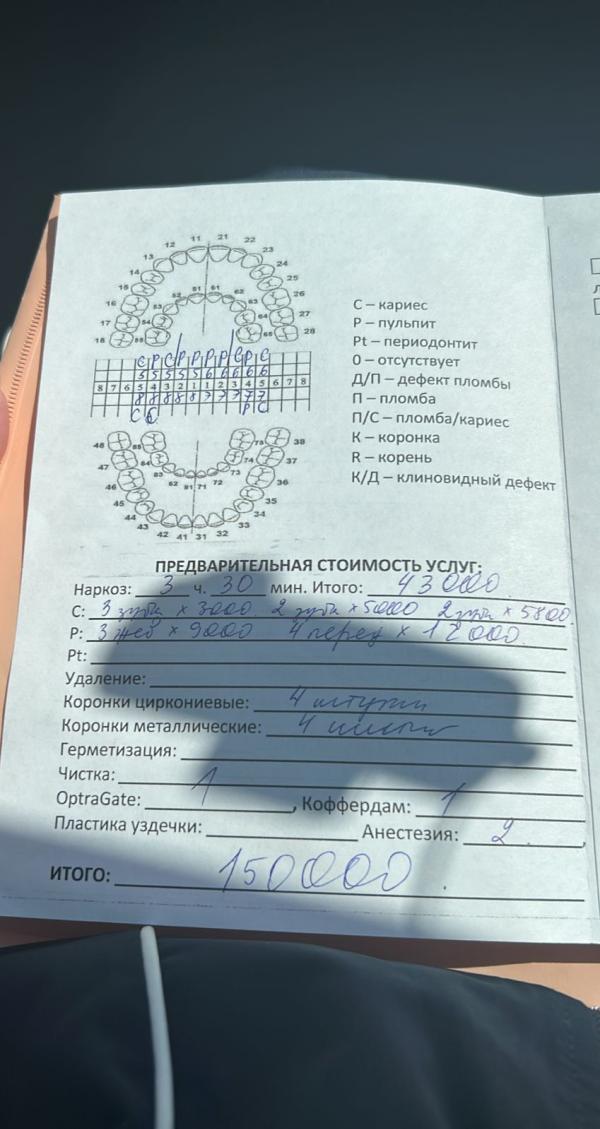 11 21
12 22
13 23
14 24
15 25
16 26
17 27
18 28
51 61
52 62
53 63
54 64
55 65
С – кариес
Р – пульпит
Pt – периодонтит
0 – отсутствует
Д/П – дефект пломбы
П – пломба
П/С – пломба/кариес
К – коронка
R – корень
К/Д – клиновидный дефект
С Р С Р Р Р Р С Р С
5 5 5 5 5 6 6 6 6 6
8 7 6 5 4 3 2 1 1 2 3 4 5 6 7 8
8 8 8 8 8 7 7 7 7 7
С С Р С
48 85 75 38
47 84 74 37
46 83 73 36
82 81 71 72
45 35
44 34
43 33
42 41 31 32
ПРЕДВАРИТЕЛЬНАЯ СТОИМОСТЬ УСЛУГ:
Наркоз: 3 ч. 30 мин. Итого: 43000
С: 3 зуба × 3000 2 зуба × 5000 2 зуба × 5800
Р: 3 жев × 9000 4 перед × 12000
Pt:
Удаление:
Коронки циркониевые: 4 штуки
Коронки металлические: 4 штуки
Герметизация:
Чистка: 1
OptraGate: , Коффердам: 1
Пластика уздечки: Анестезия: 2
ИТОГО: 150000